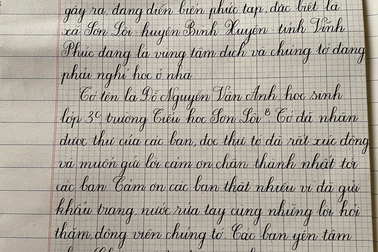 gây ra, đang diễn biến phức tạp, đặc biệt là
xã Sơn Lôi huyện Bình Xuyên tỉnh Vĩnh
Phúc đang là vùng tâm dịch và chúng tớ đang
phải nghỉ học ở nhà
Tớ tên là Đỗ Nguyễn Vân Anh, học sinh
lớp 3C trường Tiểu học Sơn Lôi B. Tớ đã nhận
được thư của các bạn, đọc thư tớ đã rất xúc động
và muốn gửi lời cảm ơn chân thành nhất tới
các bạn. Cảm ơn các bạn thật nhiều vì đã gửi
khẩu trang, nước rửa tay cùng những lời hỏi
thăm, động viên chúng tớ. Các bạn yên tâm